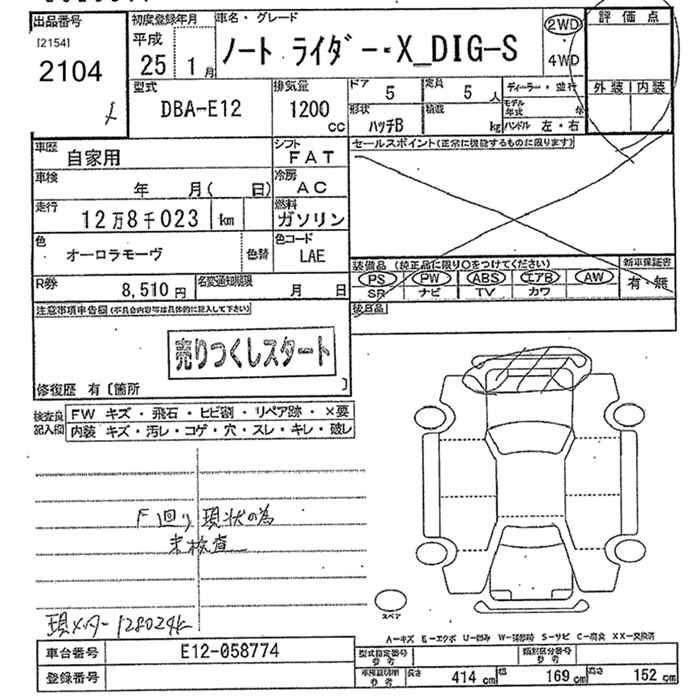 出品番号
[2154]
2104
初度登録年月
平成
25 1月
車名・グレード
ノート ライダー・X_DIG-S
2WD
・
4WD
評価点
外装 内装
型式
DBA-E12
排気量
1200
cc
ドア
5
定員
5 人
形状
ハッチB
積載
kg
ディーラー・並行
モデル年式 年
ハンドル 左・右
車歴
自家用
シフト
FAT
車検
年 月( 日)
冷房
AC
走行
12万8千023 km
燃料
ガソリン
色
オーロラモーヴ
色替
色コード
LAE
R券
8,510円
名変通知期限
月 日
セールスポイント(正常に機能するものに限ります)
装備品 (純正品に限り○をつけてください)
新車保証書
PS PW ABS エアB AW
有・無
SR ナビ TV カワ
後日品
注意事項申告欄(不具合内容等は具体的に記入して下さい)
売りつくしスタート
修復歴 有〔箇所 〕
検査員記入欄
FW キズ・飛石・ヒビ割・リペア跡・×要
内装 キズ・汚レ・コゲ・穴・スレ・キレ・破レ
F回り現状の為
未検査
現メーター128024km
スペア
A-キズ E-エクボ U-凹み W-補修跡 S-サビ C-腐食 XX-交換済
車台番号
E12-058774
登録番号
型式指定番号
参考
類別区分番号
参考
車検証明車
参考
長さ
414 cm
幅
169 cm
高さ
152 cm